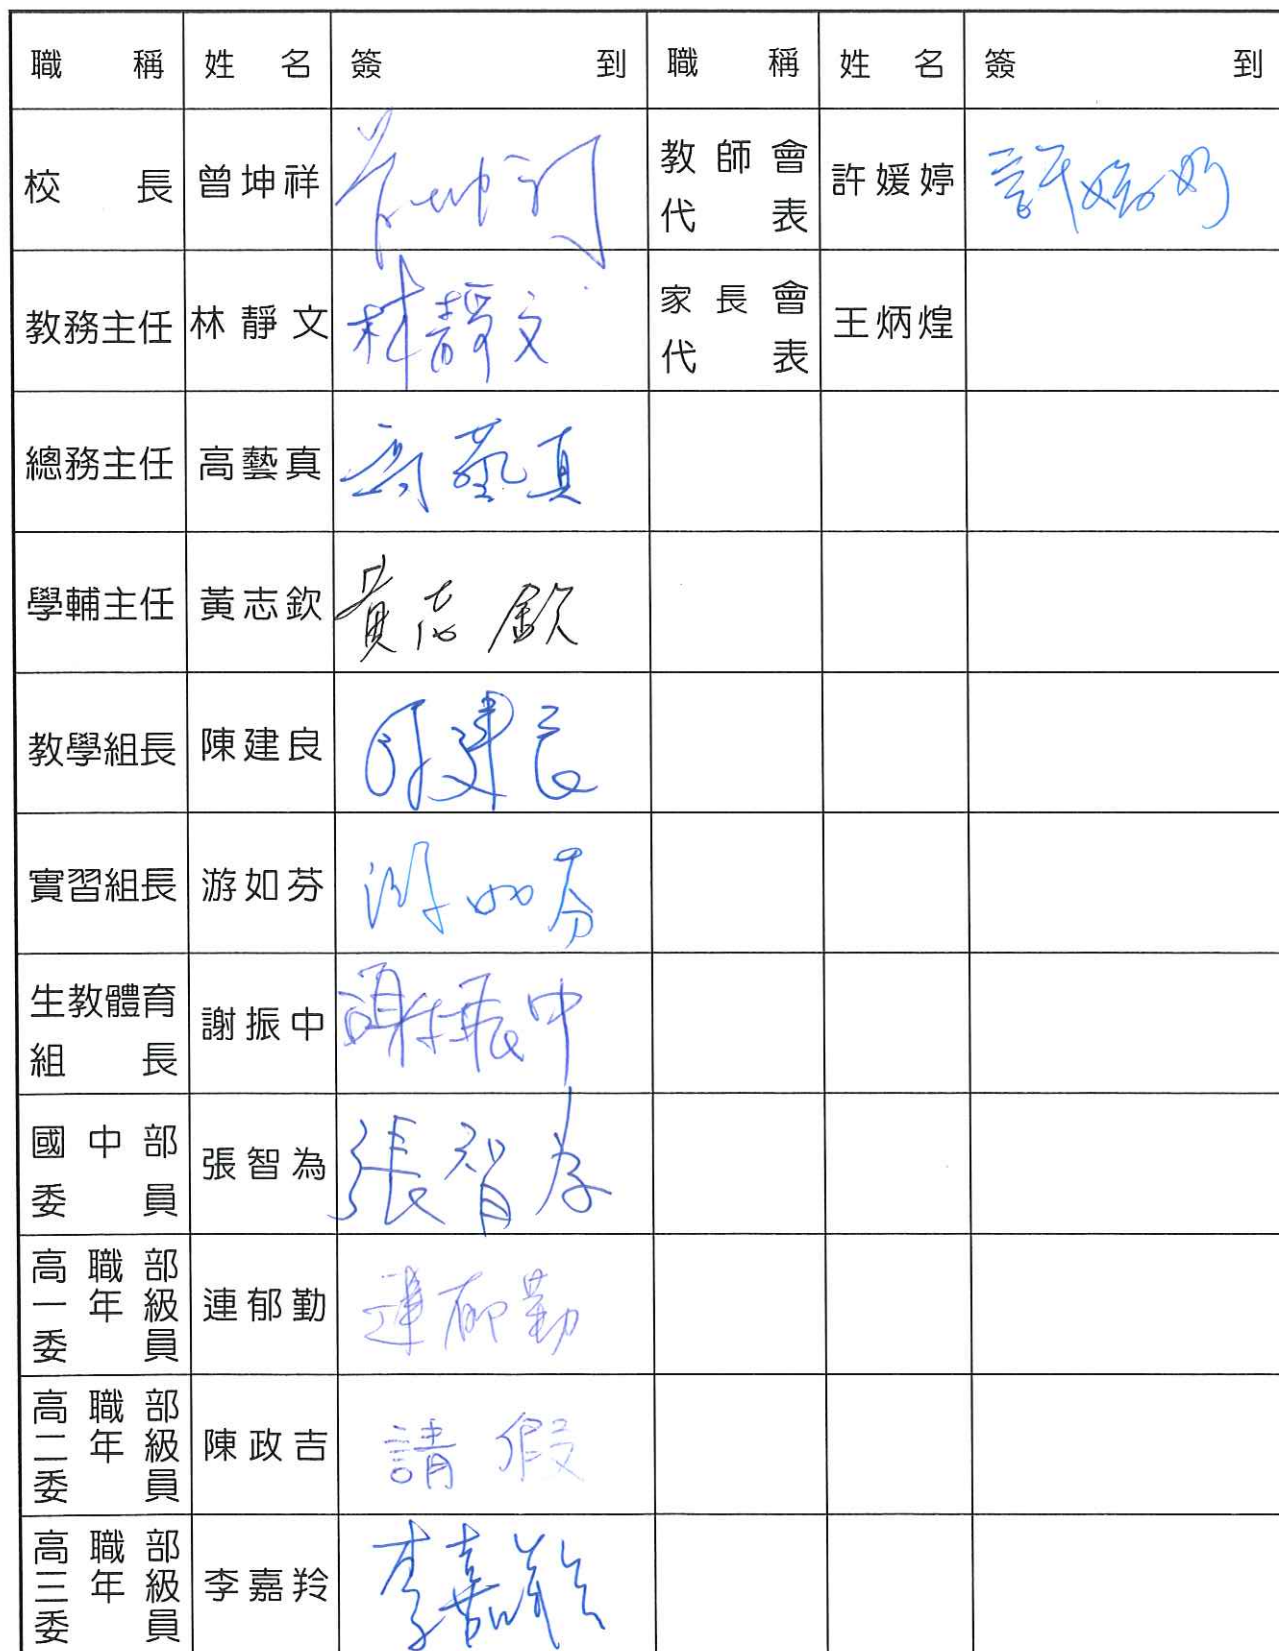 職稱 姓名 簽到 職稱 姓名 簽到
校長 曾坤祥 曾坤祥 教師會代表 許媛婷 許媛婷
教務主任 林靜文 林靜文 家長會代表 王炳煌
總務主任 高藝真 高藝真
學輔主任 黃志欽 黃志欽
教學組長 陳建良 陳建良
實習組長 游如芬 游如芬
生教體育組長 謝振中 謝振中
國中部委員 張智為 張智為
高職部一年級委員 連郁勤 連郁勤
高職部二年級委員 陳政吉 請假
高職部三年級委員 李嘉羚 李嘉羚